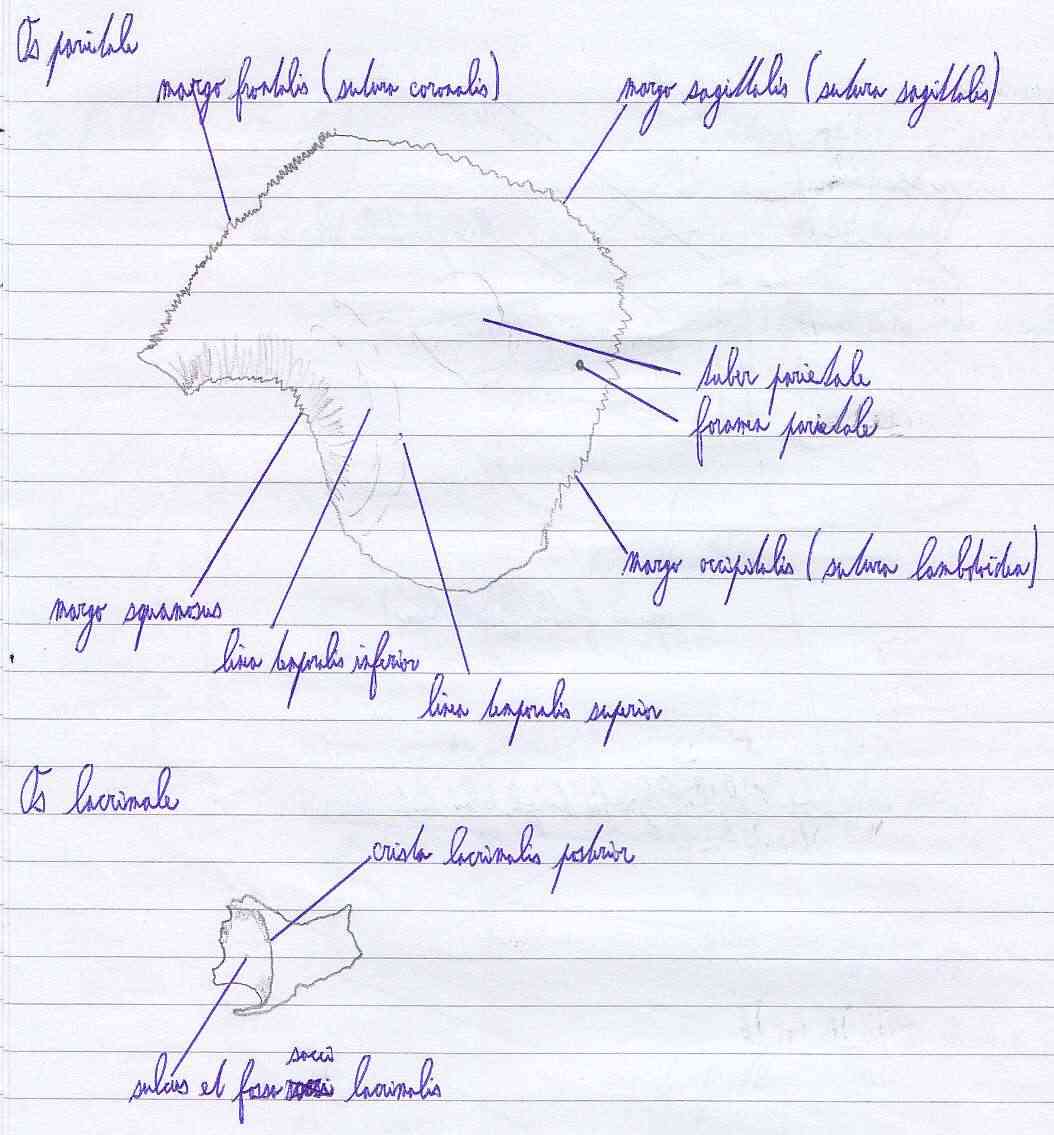 Os parietale
margo frontalis (sutura coronalis)
margo sagittalis (sutura sagittalis)
tuber parietale
foramen parietale
margo occipitalis (sutura lambdoidea)
margo squamosus
linea temporalis inferior
linea temporalis superior
Os lacrimale
crista lacrimalis posterior
sacci
sulcus et fossa lacrimalis